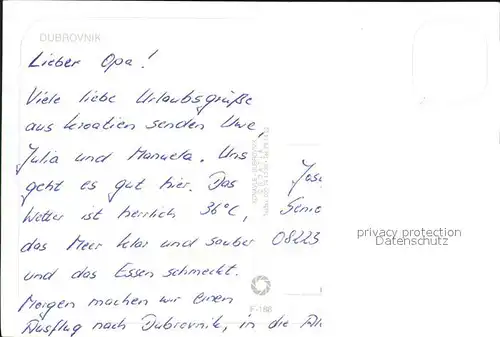 DUBROVNIK
Lieber Opa!
Viele liebe Urlaubsgrüße
aus Kroatien senden Uwe,
Julia und Manuela. Uns
geht es gut hier. Das
Wetter ist herrlich 36°C,
das Meer klar und sauber
und das Essen schmeckt.
Morgen machen wir einen
Ausflug nach Dubrovnik, in die
08223
privacy protection
Datenschutz
F-188